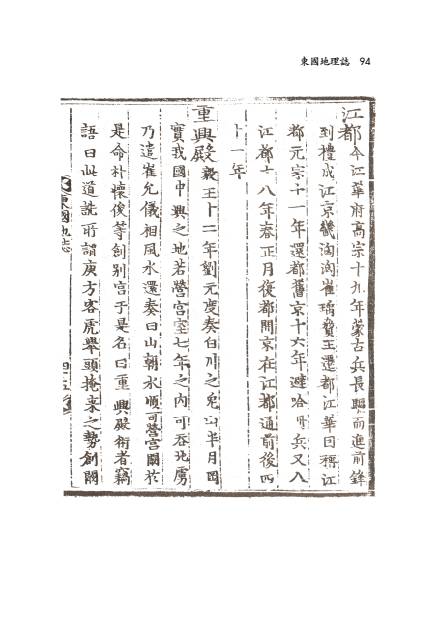 東國地理誌 94
江都 今江華府高宗十九年蒙古兵長驅而進前鋒
到禮成江京畿洶洶崔瑀贊王遷都江華因稱江
都元宗十一年還都舊京十六年避哈丹兵又入
江都十八年春正月復都開京在江都通前後四
十一年
重興殿 毅王十二年劉元度奏白川之兎山半月岡
實我國中興之地若營宮室七年之內可吞北虜
乃遣崔允儀相風水還奏曰山朝水順可營宮闕於
是命朴懷俊等創别宮于是名曰重興殿術者竊
語曰此道詵所謂庚方客虎舉頭掩来之勢創闕
東國地志
四十五